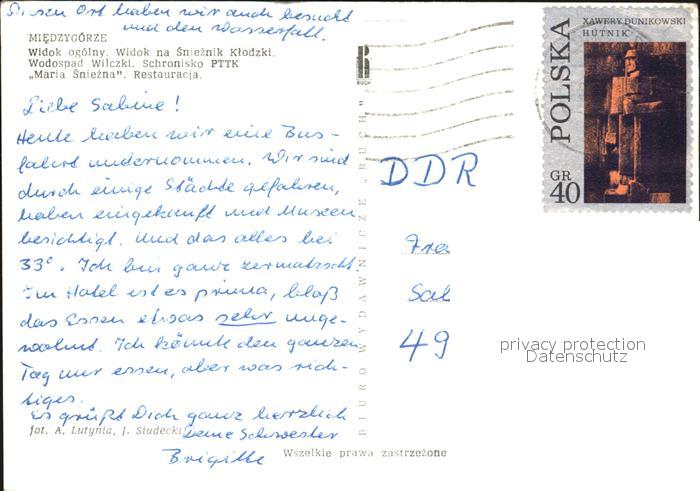 Diesen Ort haben wir auch besucht
und den Wasserfall.
MIĘDZYGÓRZE
Widok ogólny. Widok na Śnieżnik Kłodzki.
Wodospad Wilczki. Schronisko PTTK
„Maria Śnieżna". Restauracja.
Liebe Sabine!
Heute haben wir eine Bus-
fahrt undernommen. Wir sind
durch einige Städte gefahren,
haben eingekauft und Museen
besichtigt. Und das alles bei
33°. Ich bin ganz zermatscht.
Im Hotel ist es prima, bloß
das Essen etwas sehr unge-
wohnt. Ich könnte den ganzen
Tag nur essen, aber was rich-
tiges.
Es grüßt Dich ganz herzlich
Deine Schwester
Brigitte
fot. A. Lutynia, J. Siudecki
Wszelkie prawa zastrzeżone
BIURO WYDAWNICZE „RUCH"
RUCH
XAWERY DUNIKOWSKI
HUTNIK
POLSKA
GR
40
DDR
Fra
Sab
49
privacy protection
Datenschutz